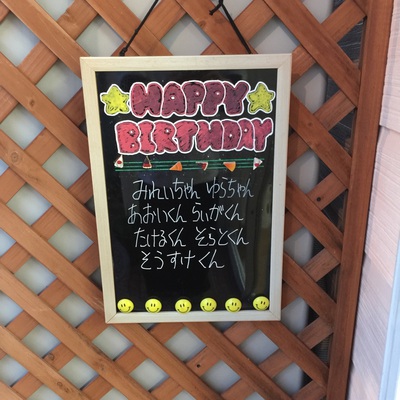 HAPPY
BIRTHDAY
みれいちゃん ゆらちゃん
あおいくん らいがくん
たけるくん そらとくん
そうすけくん